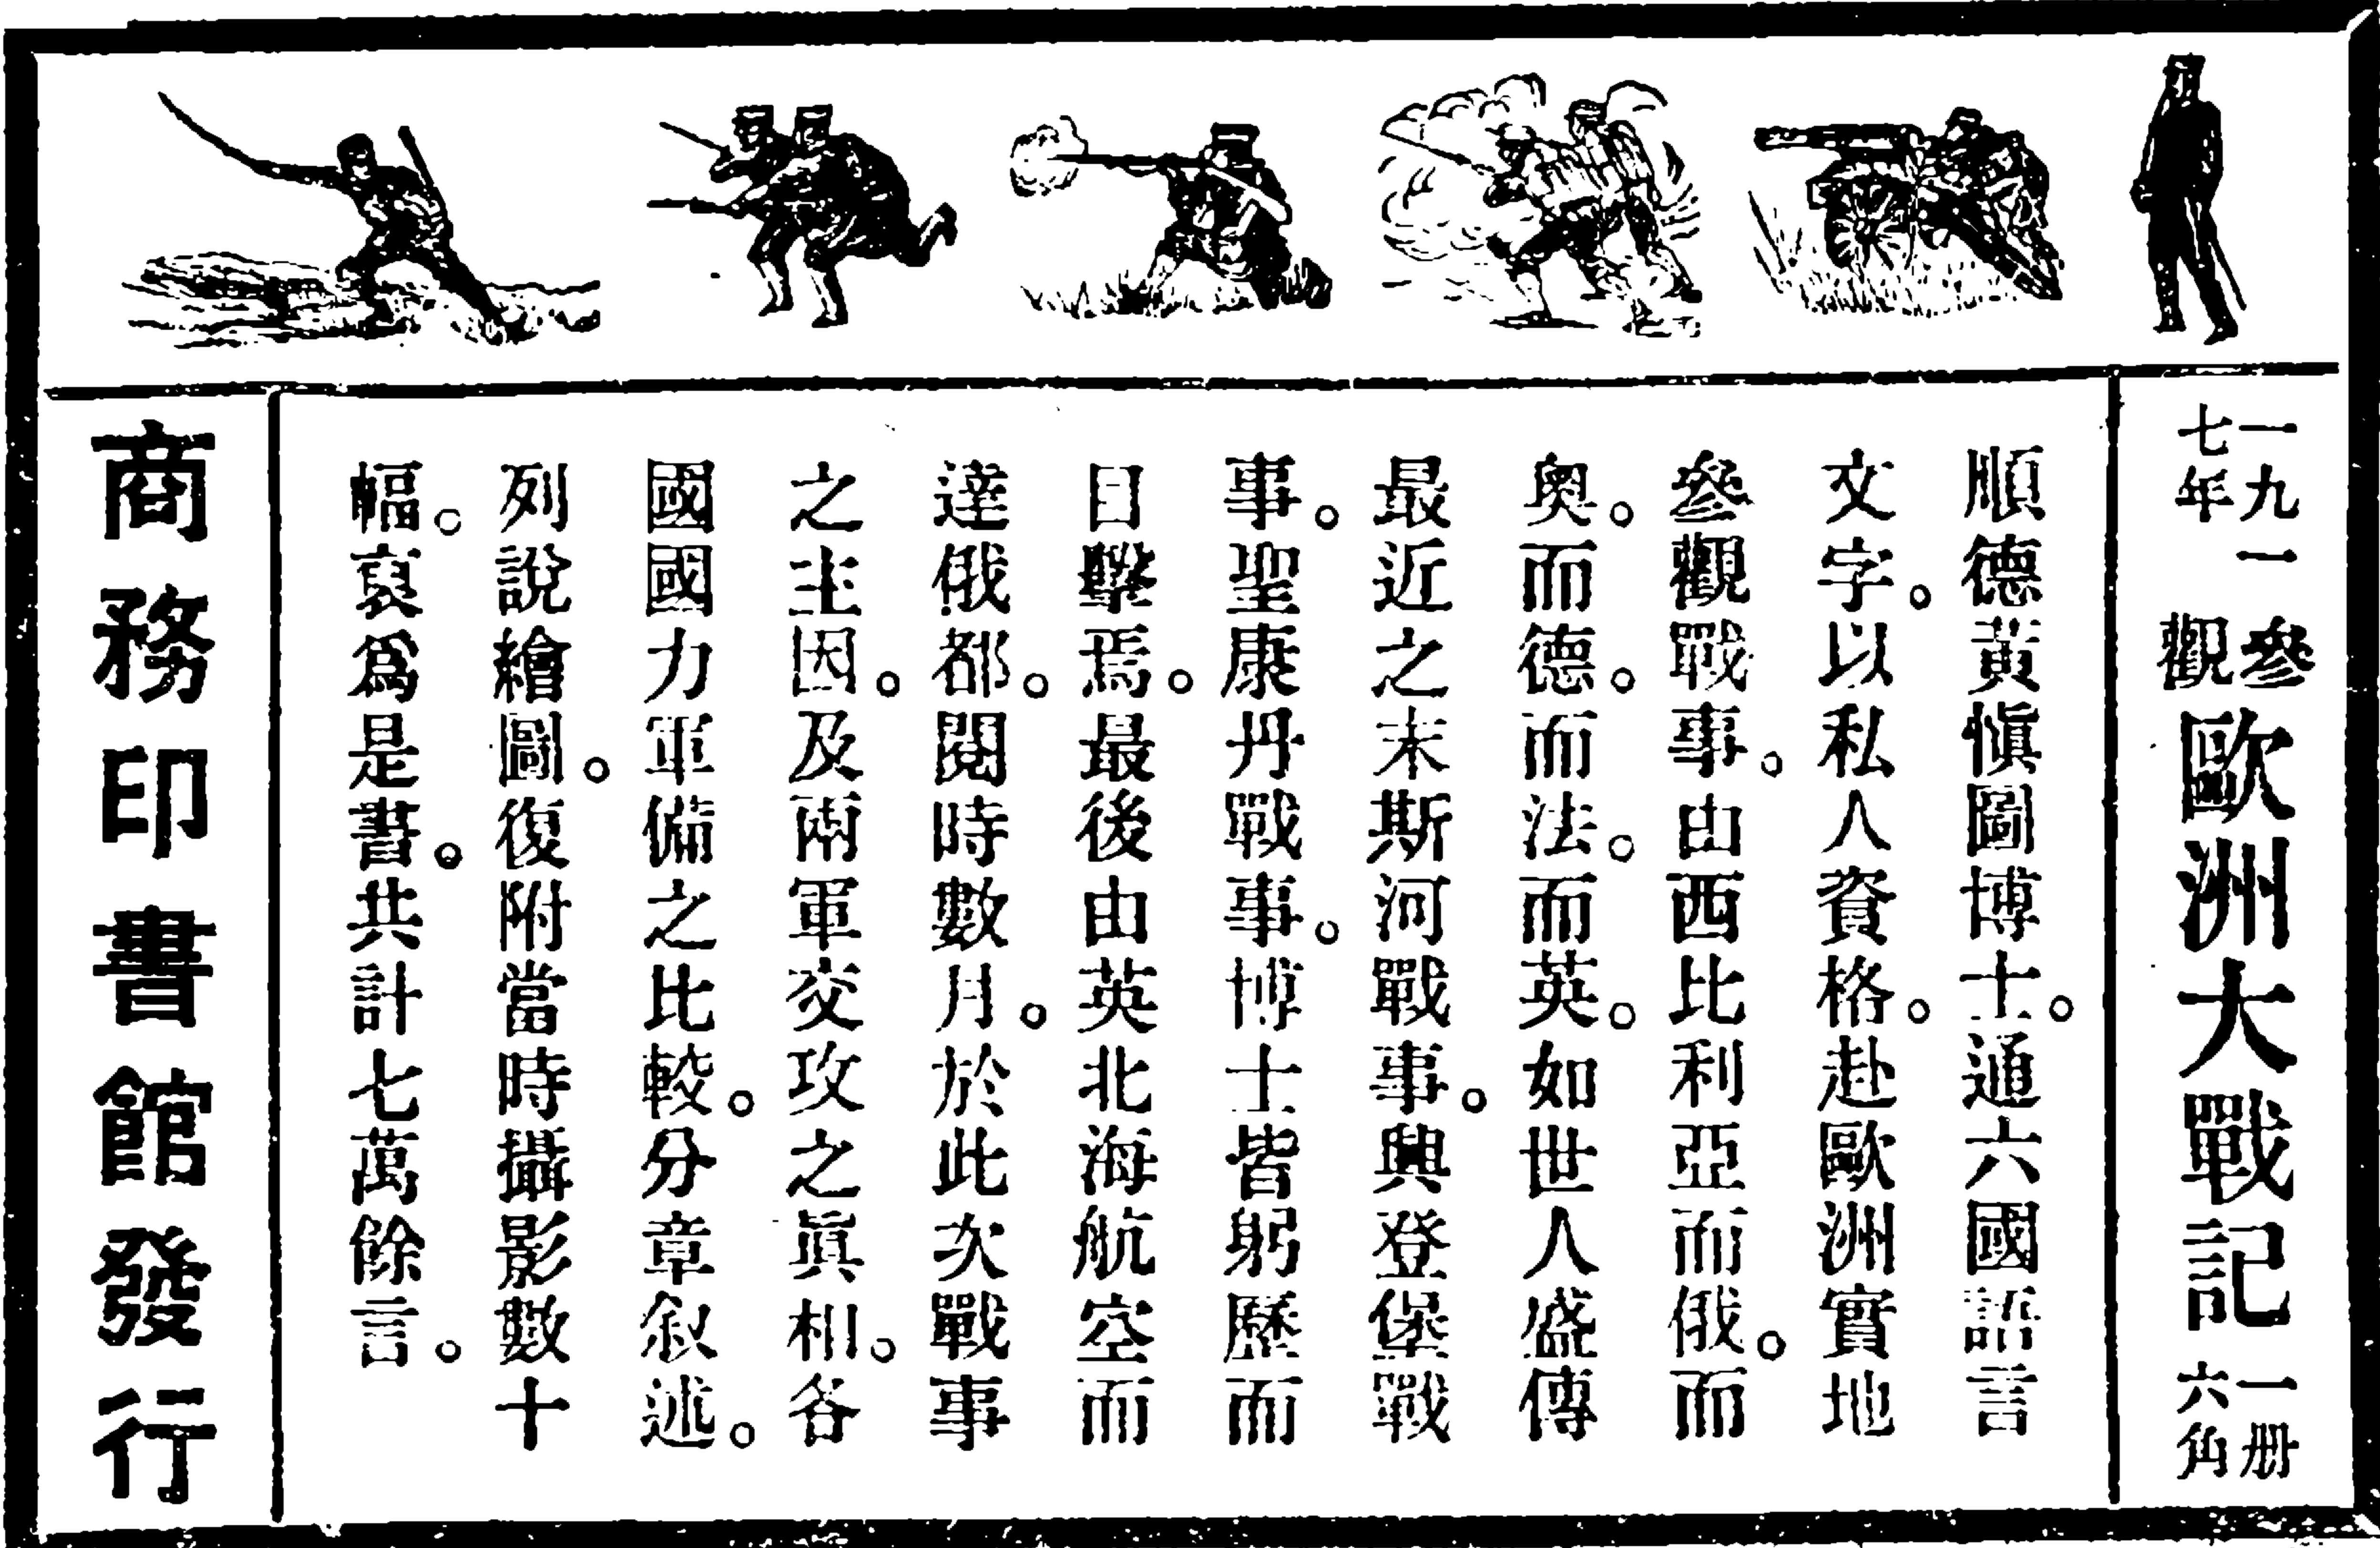 一九一七年 參觀歐洲大戰記 一册六角
順德黃愼圖博士。通六國語言
文字。以私人資格。赴歐洲實地
參觀戰事。由西比利亞而俄。而
奧。而德。而法。而英。如世人盛傳
最近之末斯河戰事。興登堡戰
事。聖康丹戰事。博士皆躬歷而
目擊焉。最後由英北海航空而
達俄都。閱時數月。於此次戰事
之主因。及兩軍交攻之眞相。各
國國力軍備之比較。分章敍述。
列說繪圖。復附當時攝影數十
幅。裒爲是書。共計七萬餘言。
商務印書館發行